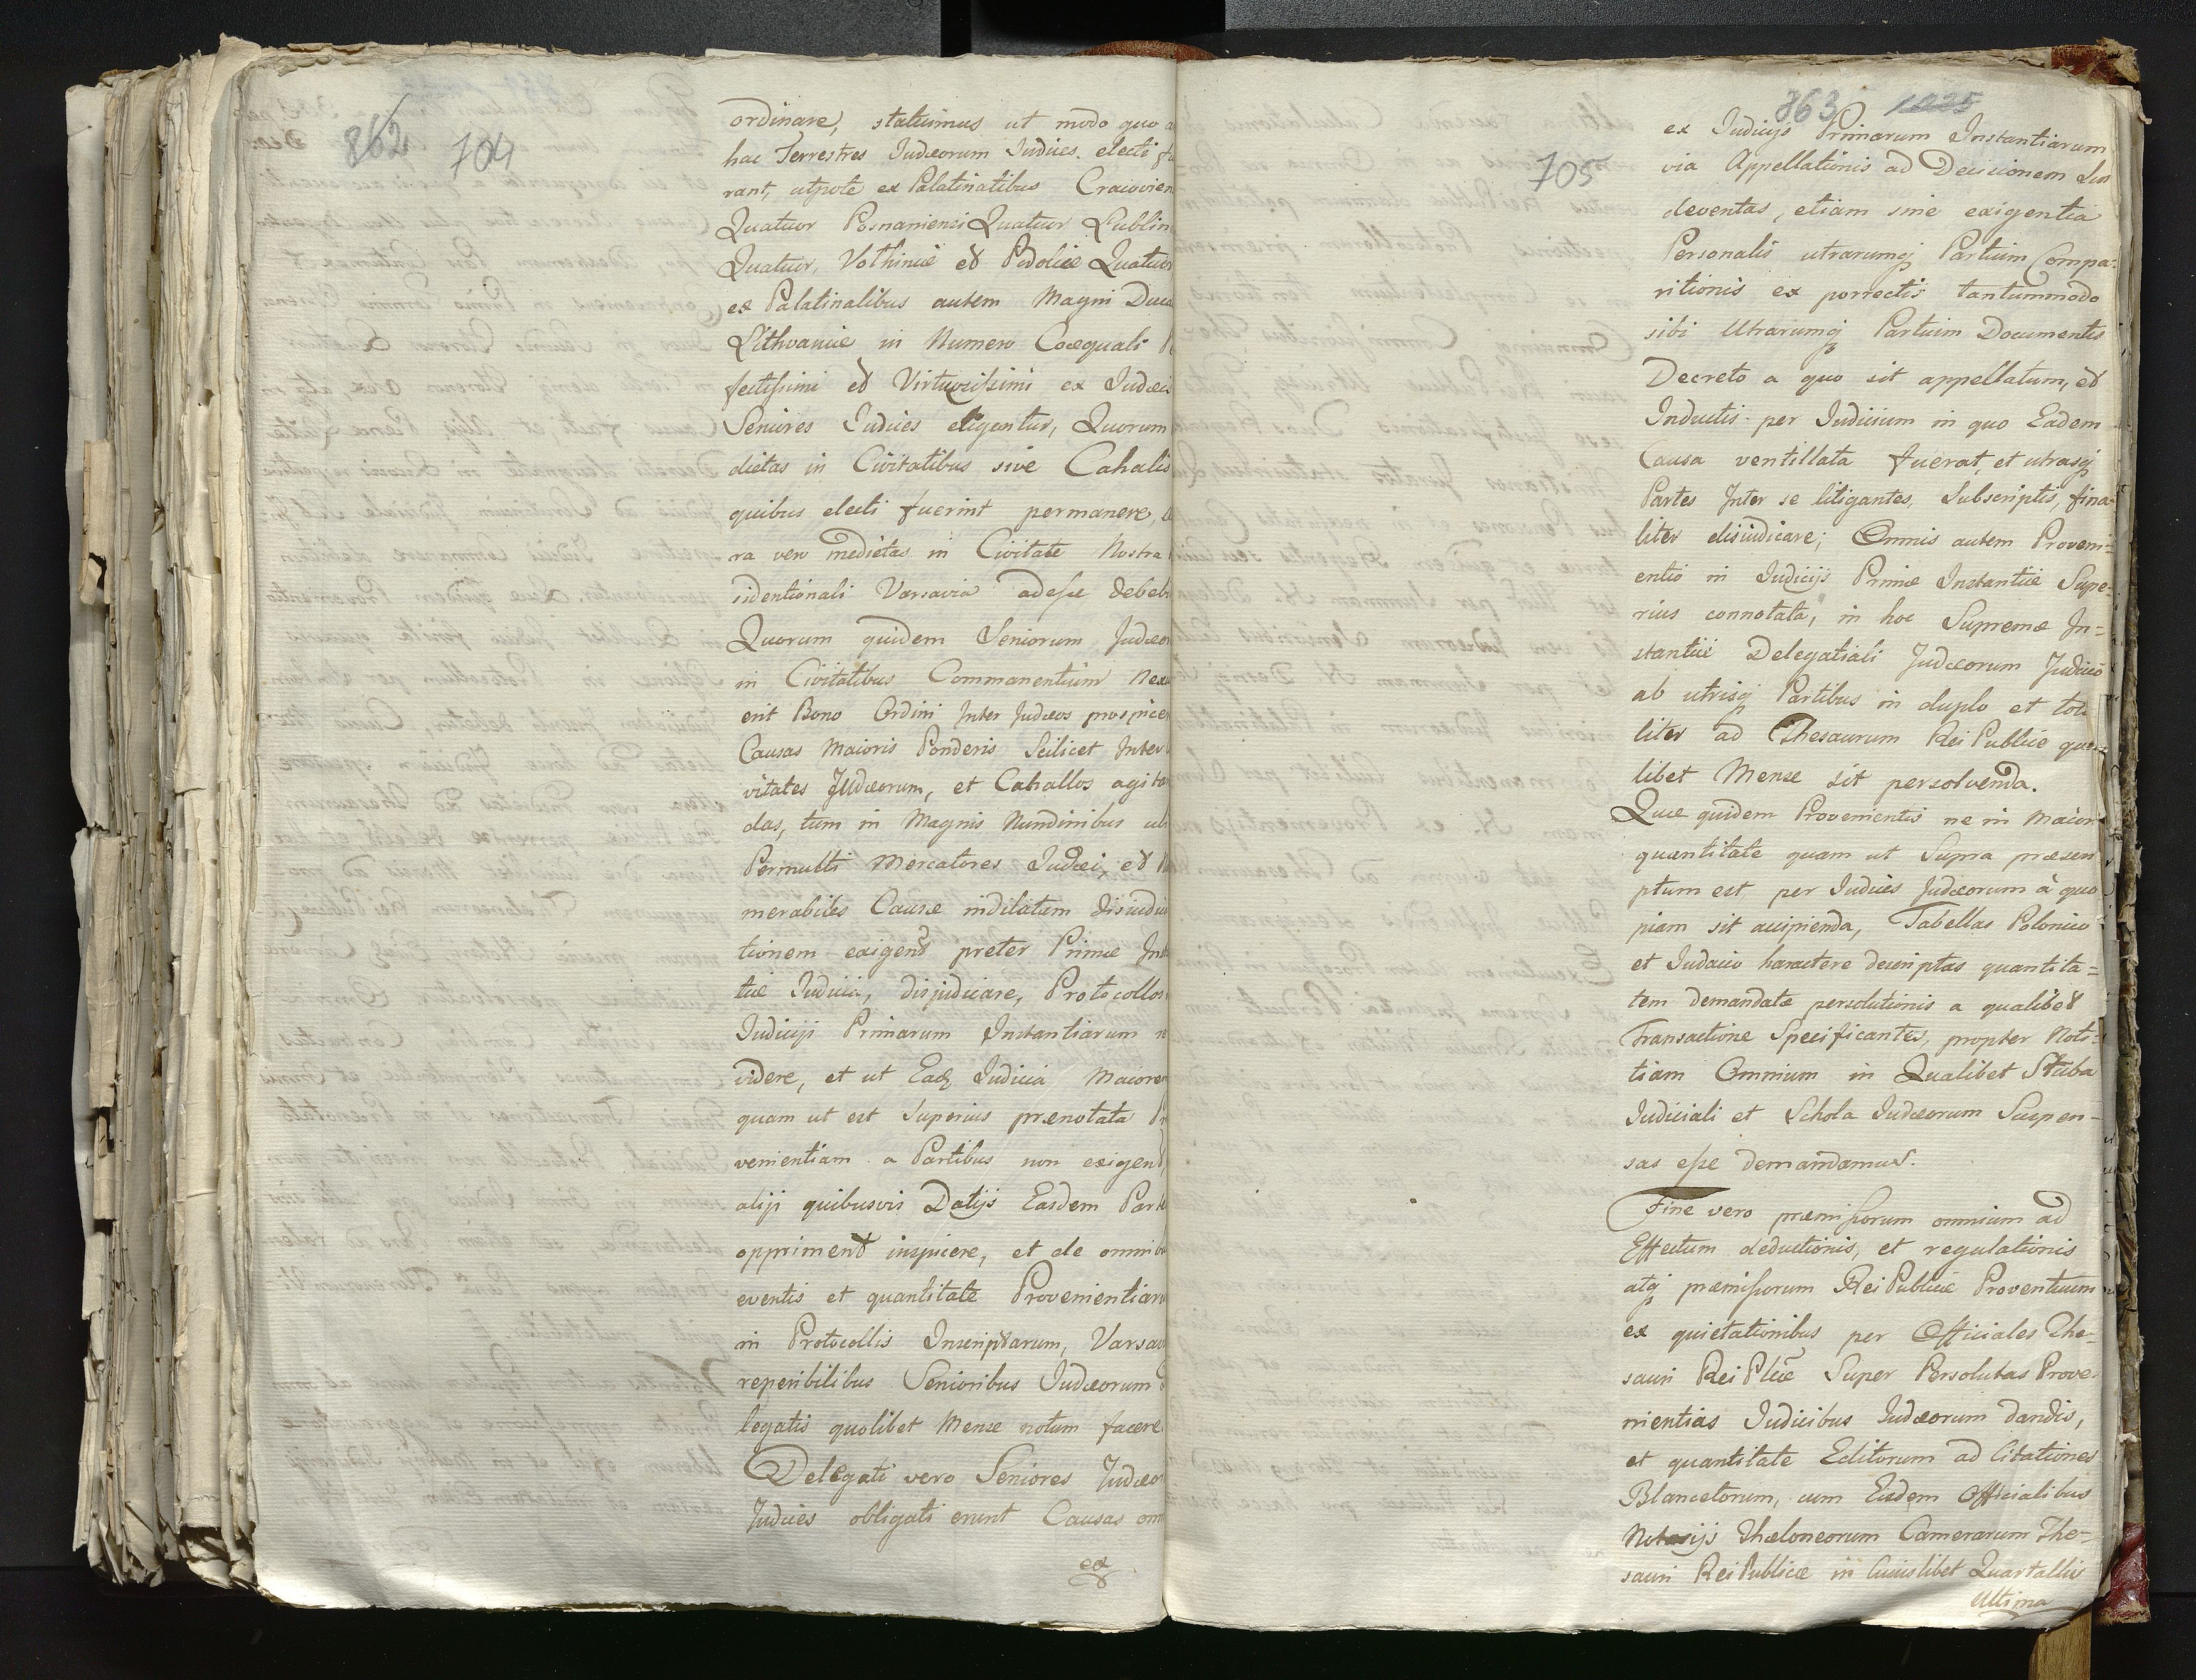 862 704
ordinare, statuimus ut modo quo a
hac Terrestres Judæorum Judices electi fu
rant, utpote ex Palatinatibus Cracovien
Quatuor Posnaniensi Quatuor Lublin
Quatuor, Volhiniæ et Podoliæ Quatuor
ex Palatinatibus autem Magni Duca
Lithvaniæ in Numero Coæquali
fectissimi et Virtuosissimi ex Judæis
Seniores Judices eligentur, Quorum
dietas in Civitatibus sive Cahalis
quibus electi fuerint permanere,
ra vero medietas in Civitate Nostra
sidentionali Varsavia adesse debebi
Quorum quidem Seniorum Judæor
in Civitatibus Commanentium Nexu
erit Bono Ordini Inter Judæos prospicer
Causas Maioris Ponderis Scilicet Inter
vitates Judæorum, et Cahallos agitan
das, tum in Magnis Nundinibus ubi
Permulti Mercatores Judæi, et
merabiles Causæ indilatam disiudica
tionem exigent preter Primæ Inst
tiæ Judicia, disjudicare, Protocollos
Judicij Primarum Instantiarum re
videre, et ut Eadę Judicia Maiorem
quam ut est Superius prænotata Pr
venientiam a Partibus non exigent
alijs quibusvis Datijs Easdem Parte
oppriment inspicere, et de omnibu
eventis et quantitate Provenientiaru
in Protocollis Inscriptarum, Varsav
reperibilibus Senioribus Judæorum
legatis quolibet Mense notum facere
Delegati vero Seniores Judæor
Judices obligati erunt Causas om
ex
863 1225
705
ex Judicijs Primarum Instantiarum
via Appellationis ad Decisionem Sui
deventas, etiam sine exigentia
Personalis utrarumq Partium Compa=
ritionis ex porrectis tantummodo
sibi Utrarumq Partium Documentis
Decreto a quo sit appellatum, et
Inductis per Judicium in quo Eadem
Causa ventillata fuerat, et utrasq
Partes Inter se litigantes, Subscriptis, fina=
liter disiudicare; Omnis autem Proveni=
entio in Judicijs Primæ Instantiæ Supe=
rius connotata, in hoc Supremæ In=
stantiæ Delegatiali Judæorum Judicio
ab utrisq Partibus in duplo et tota
liter ad Thesaurum Rei Publicæ quo=
libet Mense sit persolvenda.
Quæ quidem Provenientis ne in Maiori
quantitate quam ut Supra præscri
ptum est per Judices Judæorum à quo
piam sit accipienda, Tabellas Polonico
et Judaico haractere descriptas quantita=
tem demandatæ persolutionis a qualibet
Transactione Specificantes, propter Noti=
tiam Omnium in Qualibet Stuba
Judiciali et Schola Judæorum Suspen-
sas esse demandamus.
Fine vero præmissorum omnium ad
Effectum deductionis, et regulationis
atq præmissorum Rei Publicæ Proventuum
ex quietationibus per Officiales The-
sauri Rei Plicæ Super Persolutas Prove-
nientias Judicibus Judæorum dandis,
et quantitate Editorum ad Citationes
Blancetorum, cum Eisdem Officialibus
Notarijs Thæloneorum Camerarum The-
sauri Rei Publicæ in Cuiuslibet Quartallis
Ultima